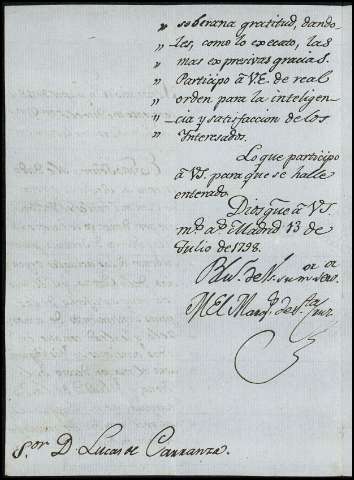 " soberana gratitud, dando-
" les, como lo executo, las
" mas expresivas gracias.
" Participo â V.E. de real
" orden para la inteligen-
" cia y satisfaccion de los
" Interesados.
Lo que participo
â VS. para que se halle
enterado.
Dios gue. â VS.
ms. as. Madrid 13 de
Julio de 1798.
BLm. de V. su mor. ser.or
El Marqs. de Sta. Cruz
S.or D. Lucas de Carranza.